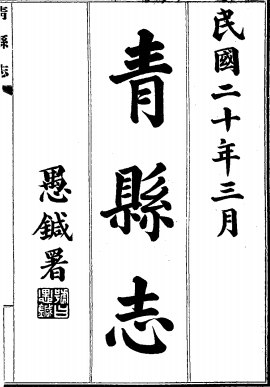 民國二十年三月
青縣志
愚鍼署
青縣志